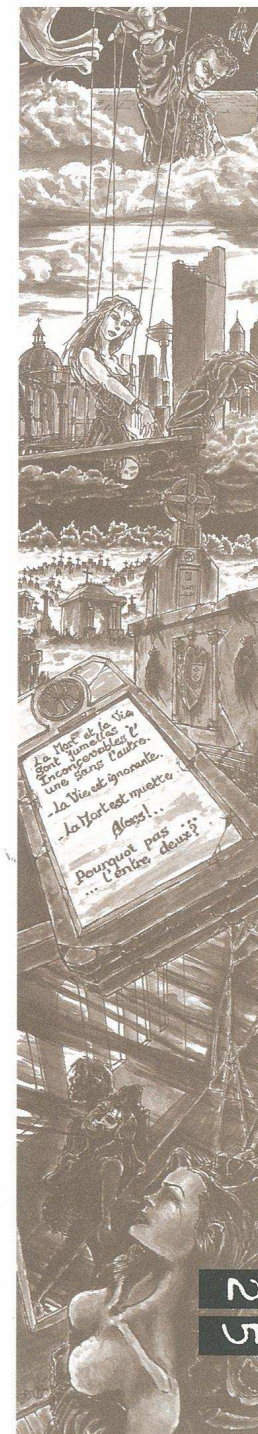 La Mort et la Vie
sont jumelles
Inconcevables l'
une sans l'autre.
-La Vie est ignorante.
-La Mort est muette
Alors!..
Pourquoi pas ...
... l'entre deux?
25